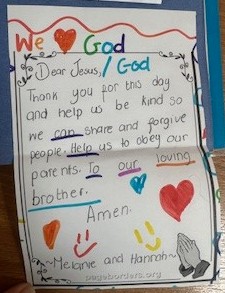 We God
Dear Jesus, / God
Thank you for this day
and help us be kind so
we can share and forgive
people. Help us to obey our
parents. To our loving
brother.
Amen.
~Melanie and Hannah~
pageborders.org